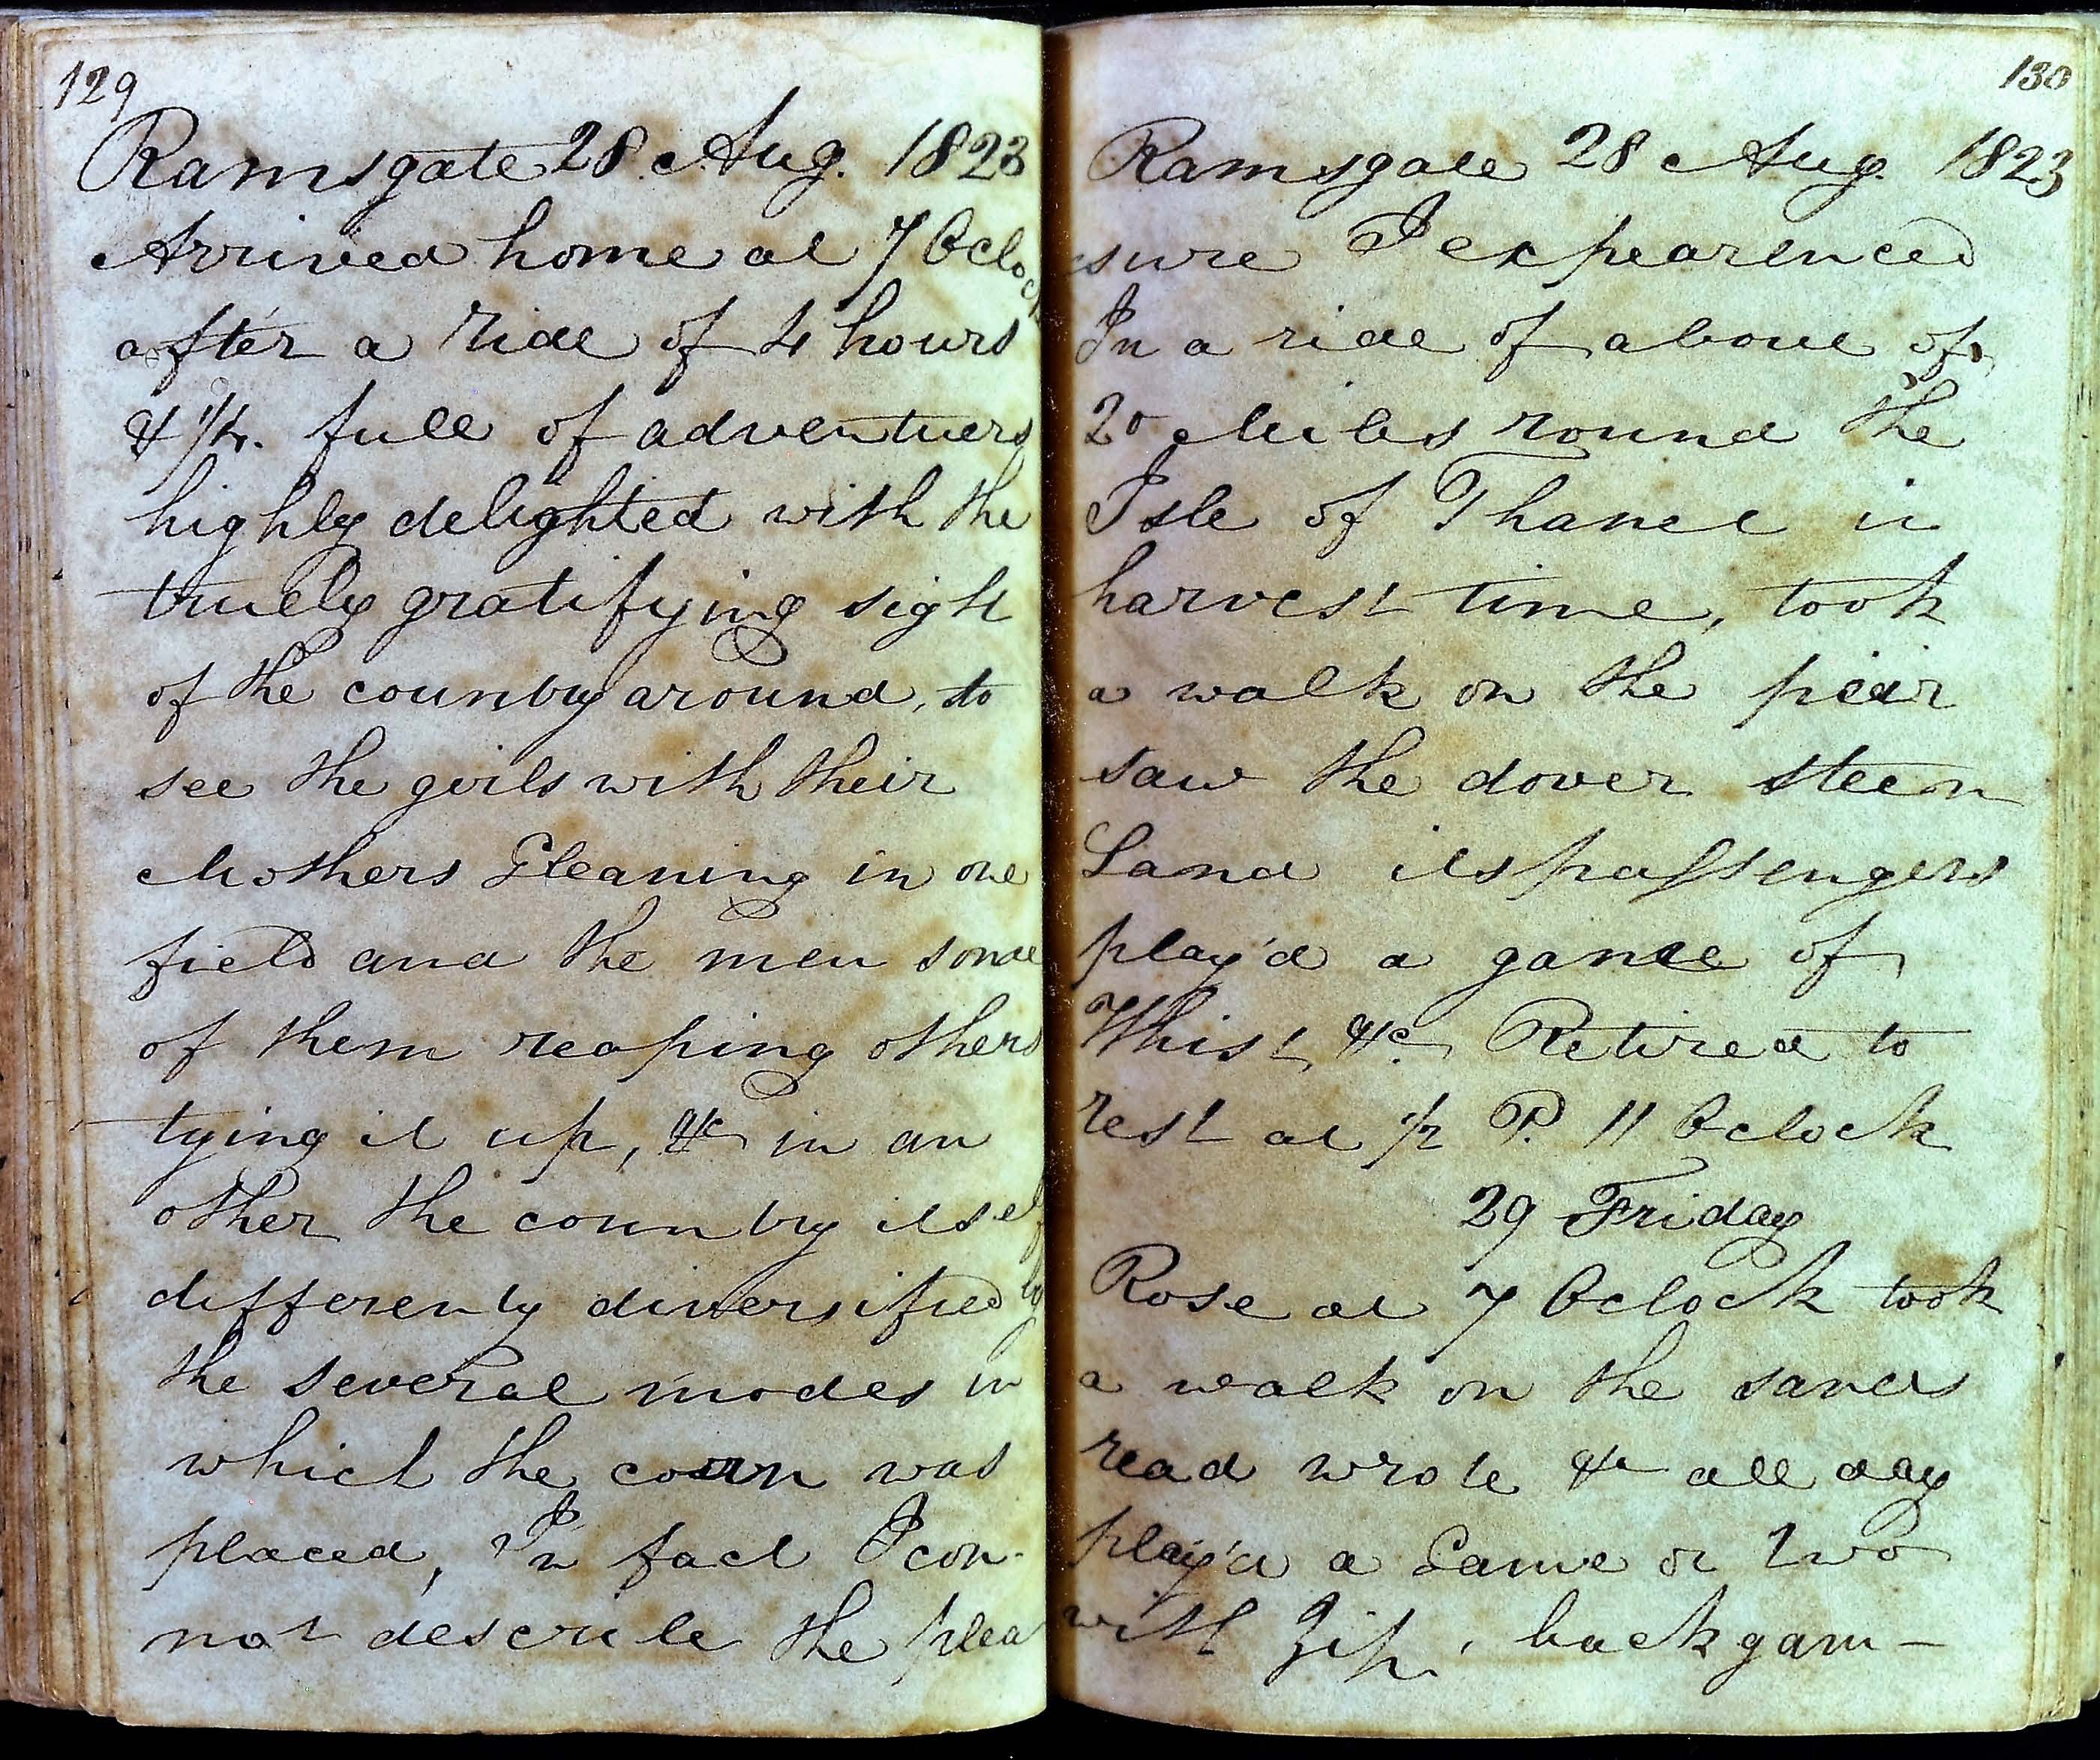 129
Ramsgate 28 Aug. 1823
Arrived home at 7 Oclock
after a ride of 4 hours
& 1/4. full of adventuers
highly delighted with the
truely gratifying sight
of the country around, to
see the girls with their
Mothers Gleaning in one
field and the men some
of them reaping others
tying it up, &c in an
other the country itself
differently diversified by
the several modes in
which the corn was
placed, In fact I con-
not describe the plea
130
Ramsgate 28 Aug. 1823
sure I expearenced
In a ride of about of
20 Miles round the
Isle of Thanet in
harvest time, took
a walk on the pier
saw the dover steem
Land its passengers
play'd a game of
Whist &c. Retired to
rest at 1/2 P. 11 Oclock
29 Friday
Rose at 7 Oclock took
a walk on the sands
read wrote &c all day
play'd a Game or two
with Zip, backgam-